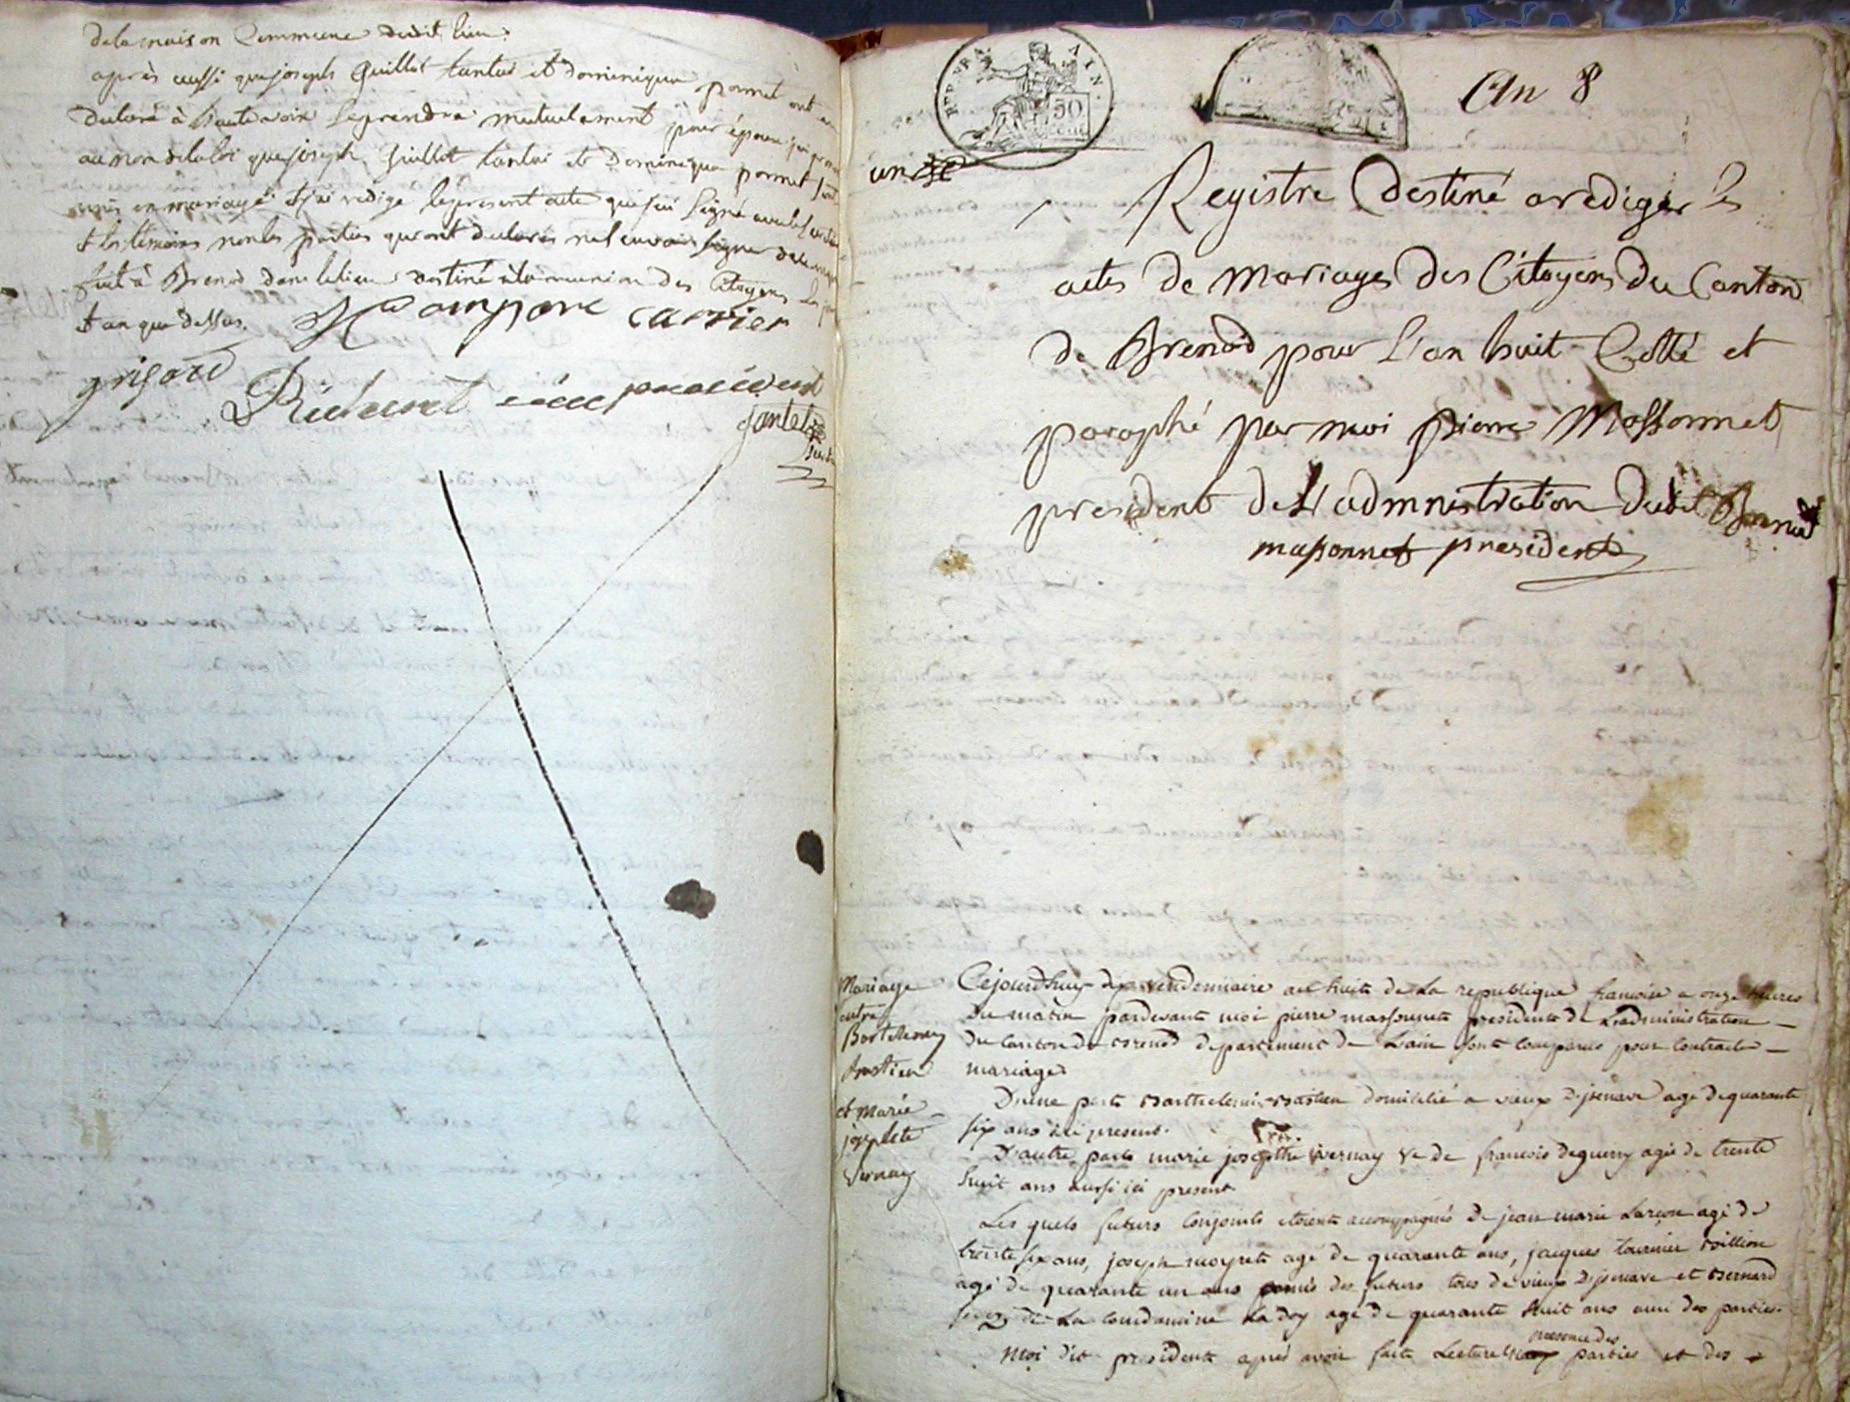 de la maison Commune dudit lieu.
après aussi que joseph Guillot tantai et dominique ponnet ont
declaré à haute voix se prendre mutuelement pour époux j'ai
au nom de la loi que joseph Guillot tantai et Dominique ponnet sont
unis en mariage et j'ai redigé le present acte que j'ai signé avec
et les temoins non les parties qui ont declarés ne scavoir signer de
fait à Brenod dans le lieu destiné à la reunion des Citoyens les
et an que dessus. carrier
grisard
jantet
REPUB AIN
50
An 8
un
Registre Destiné a rediger les
actes de Mariages des Citoyens du Canton
de Brenod pour l'an huit Cotté et
paraphé par moi pierre Massonnet
president de L'admnistration dudit Brenod
massonnet president
Mariage
entre
Bartelemy
bastien
et Marie
josephte
vernay
Cejourdhuy dix vendemiaire an huit de La republique francoise a onze heures
du matin pardevant moi pierre massonnet president de L'administration
du Canton de brenod departement de Lain sont comparus pour contracter
mariage
D'une part barthelemi bastien domicilié a vieux d'jsenave agé de quarante
six ans ici present.
D'autre part marie josephte vernay ve de francois deguerry agée de trente
huit ans aussi ici present
Les quels futurs conjoints etoient accompagnés de jean marie Larçon agé de
trente six ans, joseph moyret agé de quarante ans, jacques tournier
agé de quarante un ans des futurs tous de vieux d'jsenave et bernard
de La Combdamine Ladoy agé de quarante huit ans ami des parties.
presence des
Moi dit president après avoir fait Lecture en parties et des